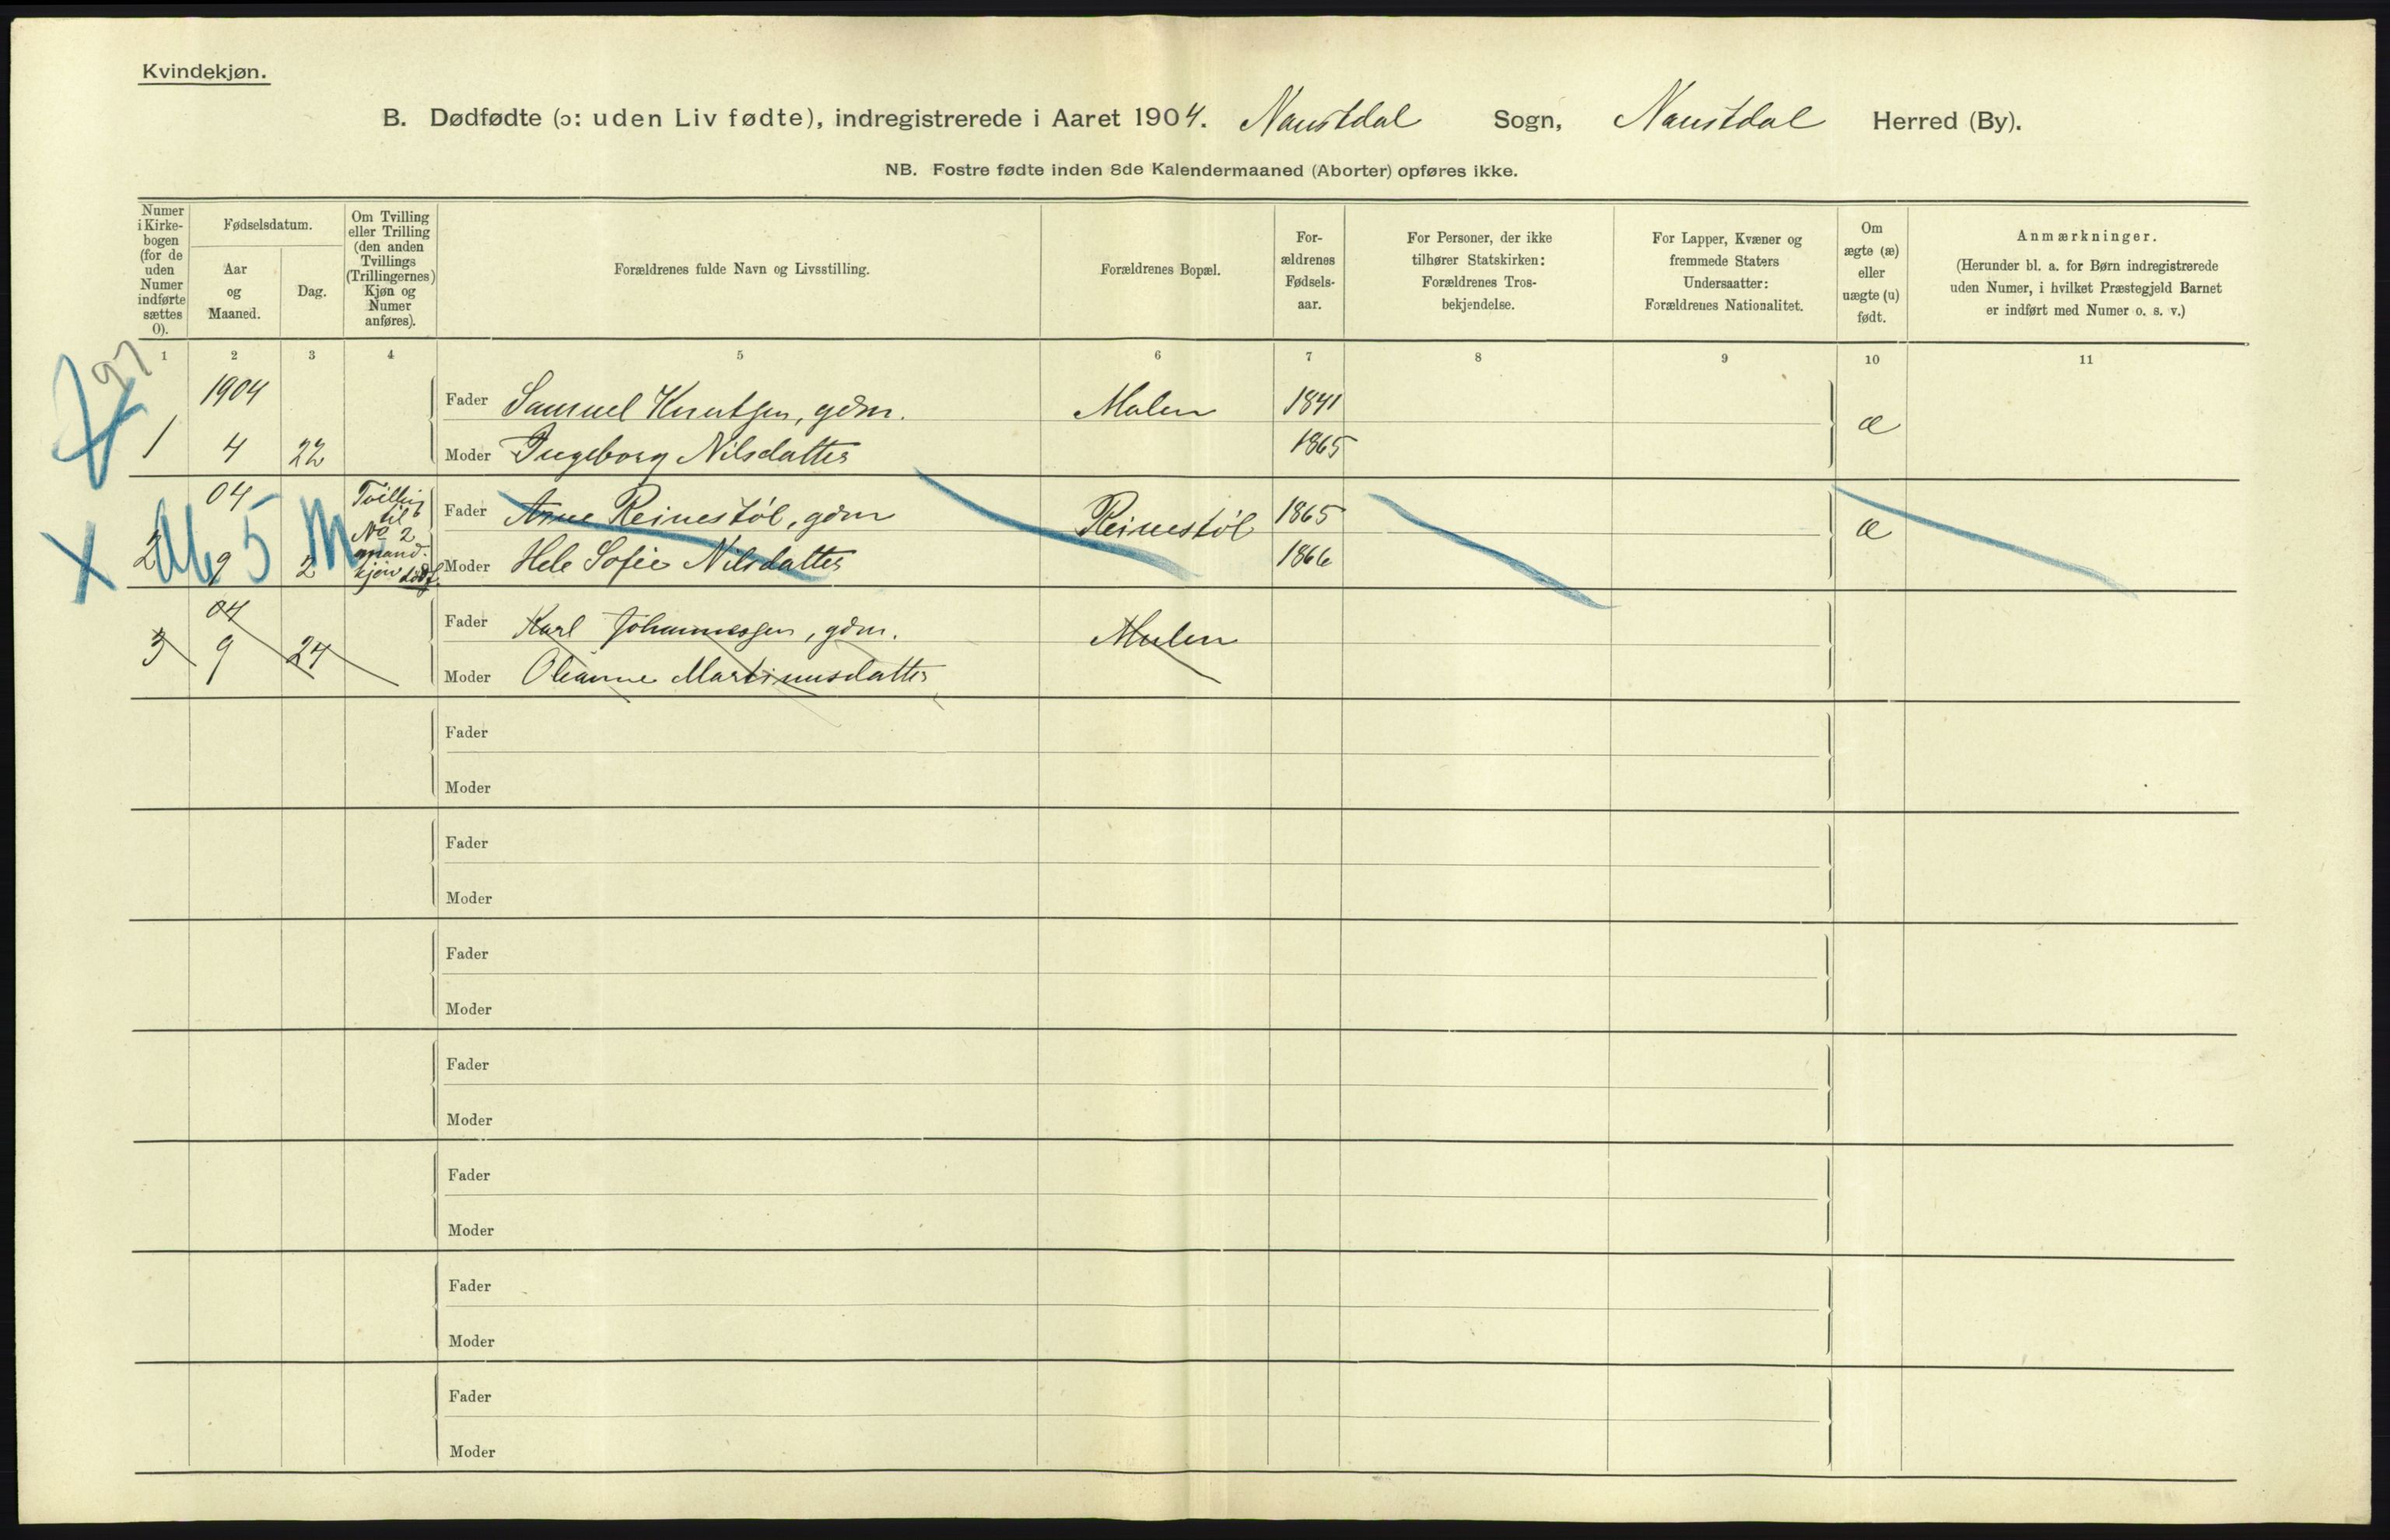 Kvindekjøn.
B. Dødfødte (ɔ: uden Liv fødte), indregistrerede i Aaret 1904. Naustdal Sogn, Naustdal Herred (By).
NB. Fostre fødte inden 8de Kalendermaaned (Aborter) opføres ikke.
Numer
i Kirke-
bogen
(for de
uden
Numer
indførte
sættes
0).
Fødselsdatum.
Aar
og
Maaned.
Dag.
Om Tvilling
eller Trilling
(den anden
Tvillings
(Trillingernes)
Kjøn og
Numer
anføres).
Forældrenes fulde Navn og Livsstilling.
Forældrenes Bopæl.
For-
ældrenes
Fødsels-
aar.
For Personer, der ikke
tilhører Statskirken:
Forældrenes Tros-
bekjendelse.
For Lapper, Kvæner og
fremmede Staters
Undersaatter:
Forældrenes Nationalitet.
Om
ægte (æ)
eller
uægte (u)
født.
Anmærkninger.
(Herunder bl. a. for Børn indregistrerede
uden Numer, i hvilket Præstegjeld Barnet
er indført med Numer o. s. v.)
1 2 3 4 5 6 7 8 9 10 11
97
1904 Fader Samuel Knutsen, gdm. Malen 1841 æ
1 4 22 Moder Ingeborg Nilsdatter 1865
04 Tvilling til No 2 mand. kjøn dødf. Fader Arne Reinestøl, gdm Reinestøl 1865 æ
X 2 9 5 2 M Moder Hele Sofie Nilsdatter 1866
04 Fader Karl Johannessen, gdm. Malen
3 9 24 Moder Oleanne Martinusdatter
Fader
Moder
Fader
Moder
Fader
Moder
Fader
Moder
Fader
Moder
Fader
Moder
Fader
Moder